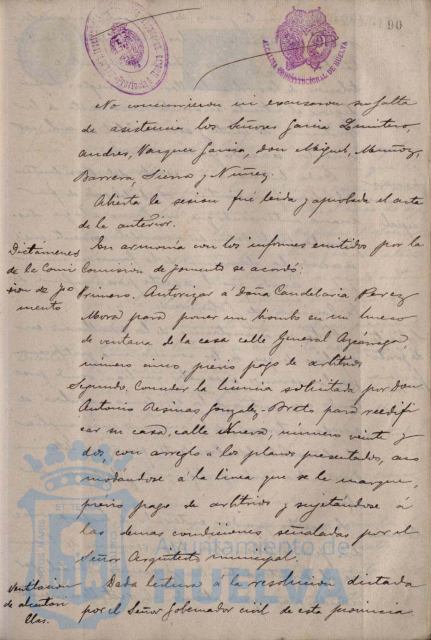 90
ALCALDIA CONSTITUCIONAL DE HUELVA
No concurrieron ni excusaron su falta
de asistencia los Señores Garcia Quintero,
Andres, Vazquez Garcia, don Miguel, Muñoz,
Barrera, Sierra y Nuñez.
Abierta la sesion fué leida y aprobada el acta
de la anterior.
Dictámenes de la Comision de Fomento
En armonia con los informes emitidos por la
Comision de Fomento se acordó:
Primero. Autorizar á Doña Candelaria Perez
Mora para poner un en un hueco
de ventana de la casa calle General Azcárraga
número cinco, previo pago de arbitrios
Segundo. Conceder la licencia solicitada por Don
Antonio Resinas Gonzalez-Breto para reedifi
car su casa, calle Nueva, número veinte y
dos, con arreglo á los planos presentados, aco
modandose á la linea que se le marque,
previo pago de arbitrios y sujetándose á
las demas condiciones señaladas por el
Señor Arquitecto municipal.
Ventilacion de alcantarillas.
Dada lectura á la resolucion dictada
por el Señor Gobernador civil de esta provincia
Ayuntamiento de
HUELVA